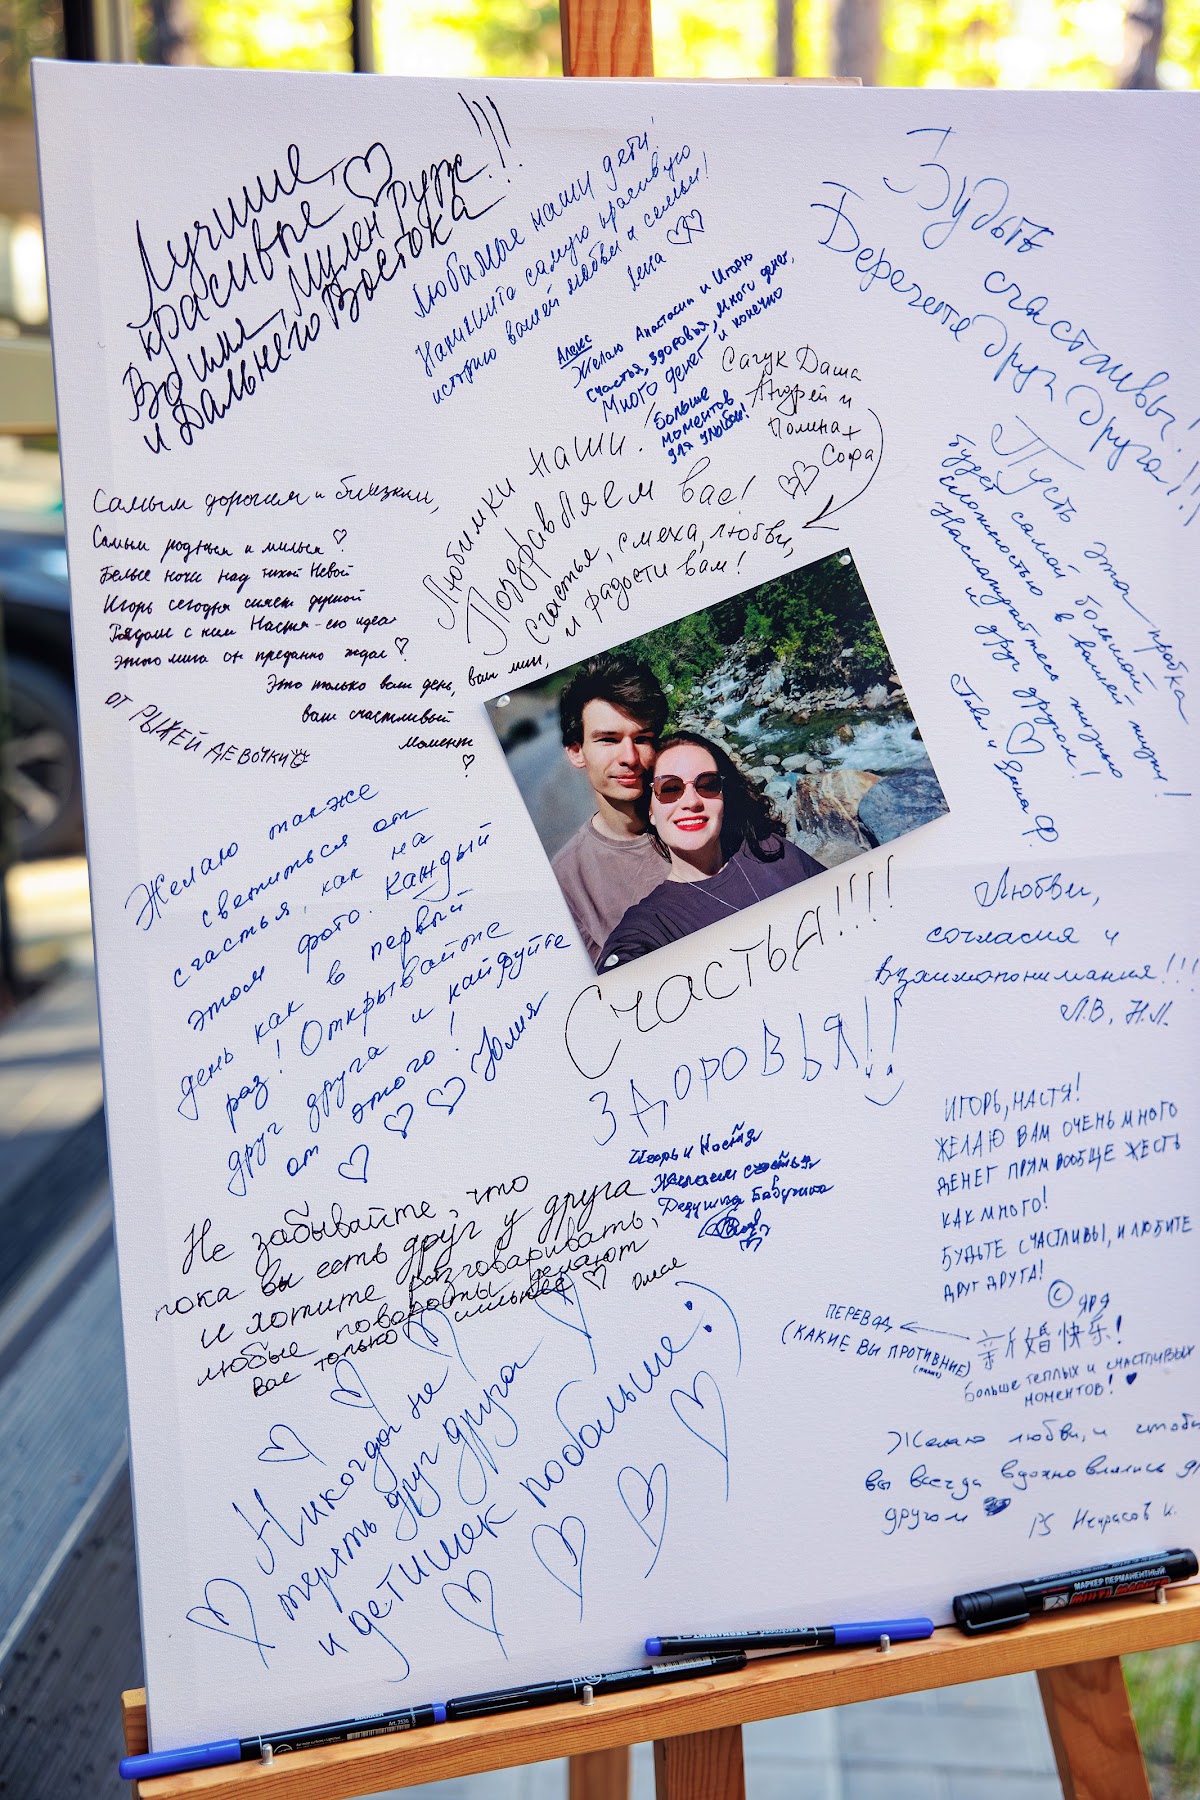 Лучшие,
красивые ♡
Ваши, Мулен Руж
и Дальнего Востока !!!
Любимые наши дети!
Напишите самую красивую
историю вашей любви и семьи!
Лена ♡♡
Алекс
Желаю Анастасии и Игорю
счастья, здоровья, много денег,
много денег и конечно
больше
моментов
для улыбок!
Сачук Даша
Андрей и
Полина +
Софа
Любимки наши!
Поздравляем вас! ♡♡
Счастье, смеха, любви,
и радости вам!
Будьте счастливы!
Берегите друг друга!!!
Пусть эта пробка
будет самой большой
сложностью в вашей жизни!
Наслаждайтесь жизнью
и друг другом!
♡
Самым дорогим и близким,
Самым родным и милым ♡
Белые ночи над тихой Невой
Игорь сегодня сияет душой
Рядом с ним Настя - его идеал
Этого мига он преданно ждал ♡
Это только ваш день, ваш миг,
ваш счастливый
момент
♡
от РЫЖЕЙ ДЕВОЧКИ
Желаю также
светиться от
счастья, как на
этом фото. Каждый
день как в первый
раз! Открывайте
друг друга и кайфуйте
от этого!
♡ ♡ ♡ Юлия
СЧАСТЬЯ!!!!
ЗДОРОВЬЯ!!
Любви,
согласия и
взаимопонимания!!!
Л.В, Н.Л.
Игорь и Настя
Желаем счастья
Дедушка Бабушка
ИГОРЬ, НАСТЯ!
ЖЕЛАЮ ВАМ ОЧЕНЬ МНОГО
ДЕНЕГ ПРЯМ ВООБЩЕ ЖЕСТЬ
КАК МНОГО!
БУДЬТЕ СЧАСТЛИВЫ, И ЛЮБИТЕ
ДРУГ ДРУГА!
©
ЯРД
新婚快乐!
ПЕРЕВОД
(КАКИЕ ВЫ ПРОТИВНИЕ)
Больше теплых и счастливых
моментов! ♥
Не забывайте, что
пока вы есть друг у друга
и хотите разговаривать,
любые повороты делают
вас только сильнее ♡
Олеся
Никогда не
терять друг друга
и детишек побольше :)
Желаю любви, и чтобы
вы всегда вдохновлялись др
другом ♥
PS Некрасов И.
МАРКЕР ПЕРМАНЕНТНЫЙ